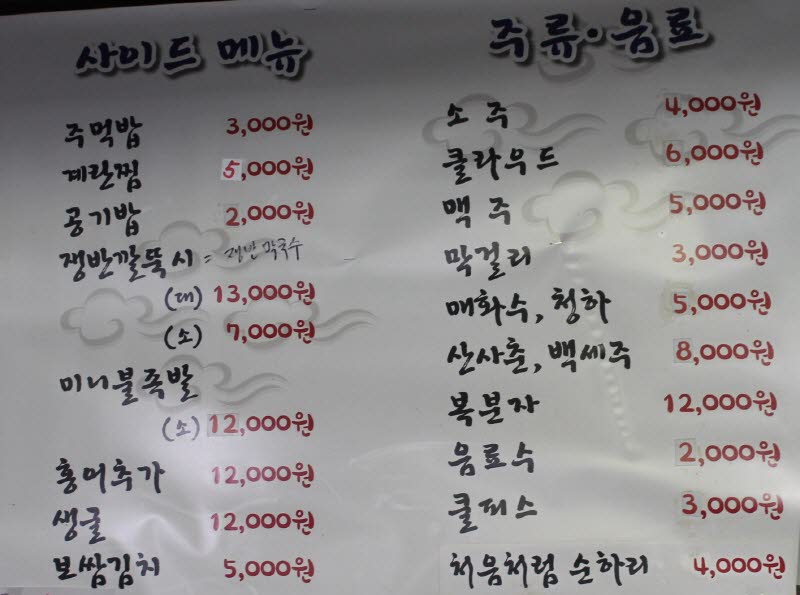 사이드 메뉴
주먹밥 3,000원
계란찜 5,000원
공기밥 2,000원
쟁반깔뚝시 = 쟁반막국수
(대) 13,000원
(소) 7,000원
미니불족발
(소) 12,000원
홍어추가 12,000원
생굴 12,000원
보쌈김치 5,000원
주류·음료
소주 4,000원
클라우드 6,000원
맥주 5,000원
막걸리 3,000원
매화수, 청하 5,000원
산사춘, 백세주 8,000원
복분자 12,000원
음료수 2,000원
쿨피스 3,000원
처음처럼 순하리 4,000원